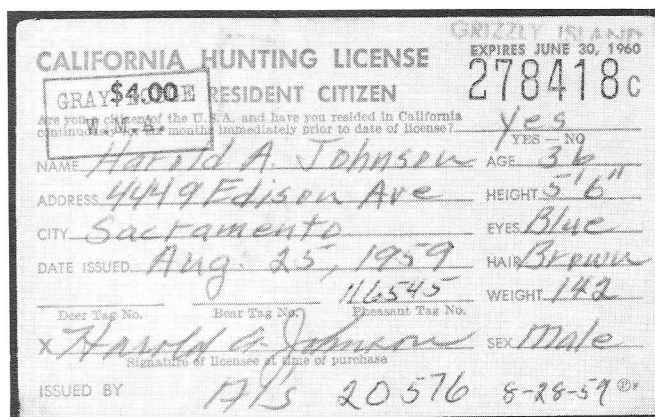 GRIZZLY ISLAND
CALIFORNIA HUNTING LICENSE EXPIRES JUNE 30, 1960
$4.00 RESIDENT CITIZEN 278418C
GRAY LODGE
W.M.A.
Are you a citizen of the U.S.A. and have you resided in California
continuously months immediately prior to date of license? Yes
YES — NO
NAME Harold A. Johnson AGE 36
ADDRESS 4449 Edison Ave HEIGHT 5'6"
CITY Sacramento EYES Blue
DATE ISSUED Aug. 25, 1959 HAIR Brown
116545 WEIGHT 142
Deer Tag No. Bear Tag No. Pheasant Tag No.
X Harold A. Johnson SEX Male
Signature of licensee at time of purchase
ISSUED BY Al's 20576 8-28-59